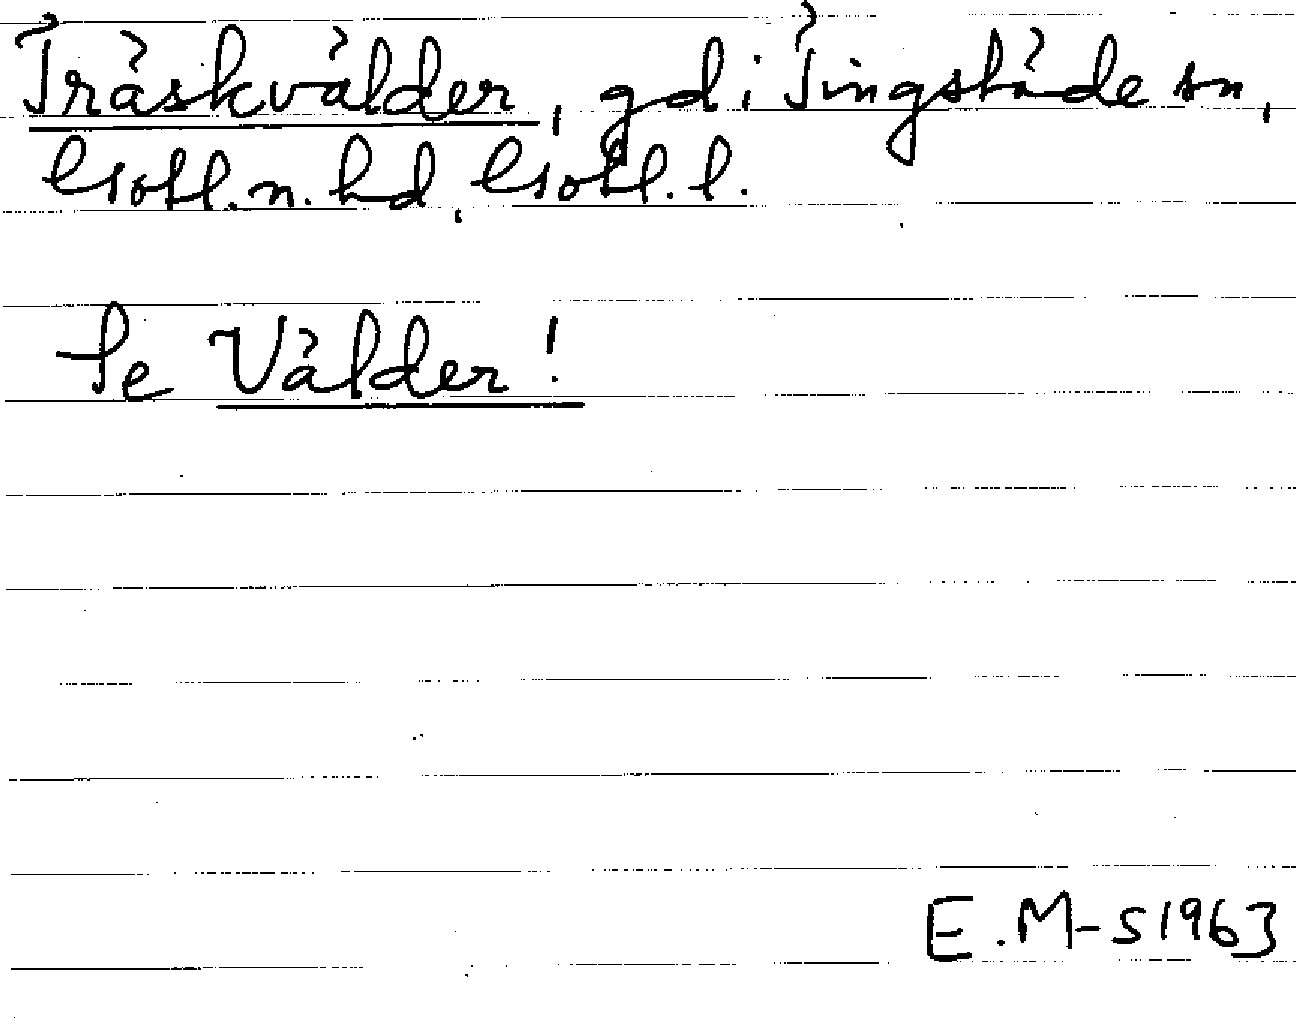 Träskvälder, gd i Tingstäde sn,
Gotl. n. hd, Gotl. l.
Se Välder!
E. M-s 1963